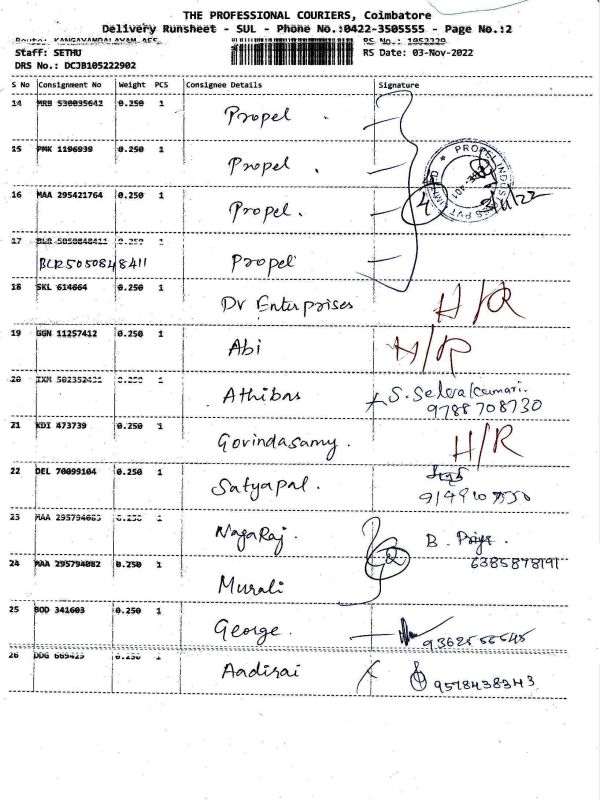 THE PROFESSIONAL COURIERS, Coimbatore
Delivery Runsheet - SUL - Phone No.:0422-3505555 - Page No.:2
Staff: SETHU RS Date: 03-Nov-2022
DRS No.: DCJB105222902
S No Consignment No Weight PCS Consignee Details Signature
14 MRB 530035642 0.250 1 Propel
15 PMK 1196939 0.250 1 Propel
16 MAA 295421764 0.250 1 Propel. 4
17 BLR 5050848411 0.250 1
BLR5050848411 Propel
18 SKL 614664 0.250 1 Dv Enterprises H/R
19 GGN 11257412 0.250 1 Abi H/R
20 0.250 1 Athibas S. Selvakumari.
9788708730
21 KDI 473739 0.250 1 Govindasamy. H/R
22 DEL 70099104 0.250 1 Satyapal.
23 0.250 1 Nagaraj. B. Priya.
6385878191
24 MAA 295794082 0.250 1 Murali 2
25 BOD 341603 0.250 1 George.
26 DDG 669429 0.250 1 Aadirai 9578438343